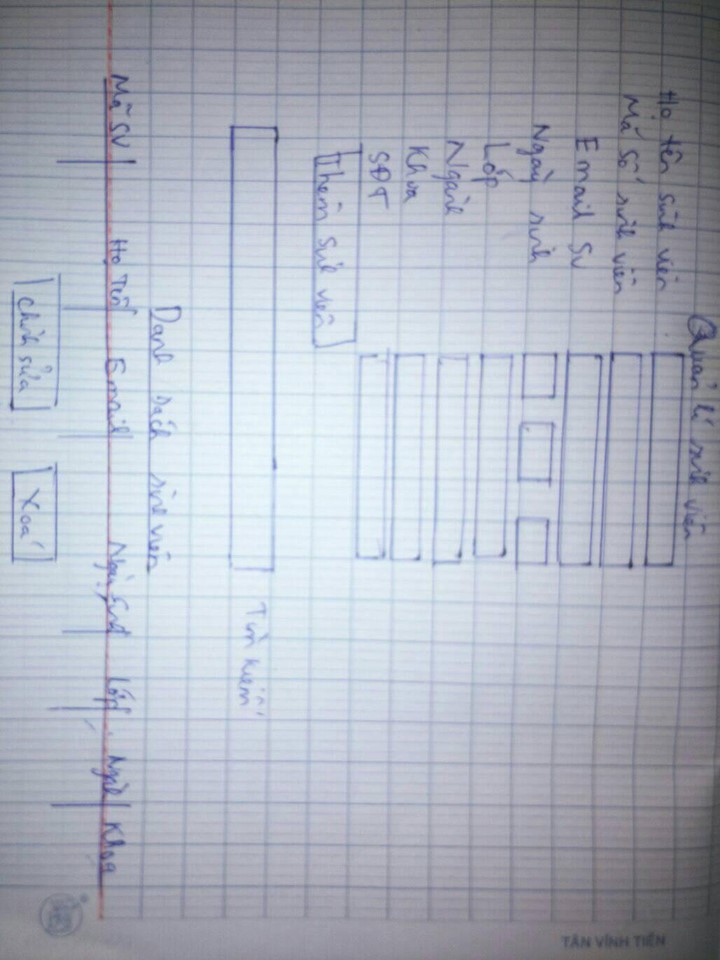 Quản lí sinh viên
Họ tên sinh viên
Mã số sinh viên
Email SV
Ngày sinh
Lớp
Ngành
Khoa
SĐT
Thêm sinh viên
Tìm kiếm
Danh sách sinh viên
Mã SV Họ Tên Email Ngày Sinh Lớp Ngành Khoa
Chỉnh sửa Xoá
TÂN VĨNH TIẾN